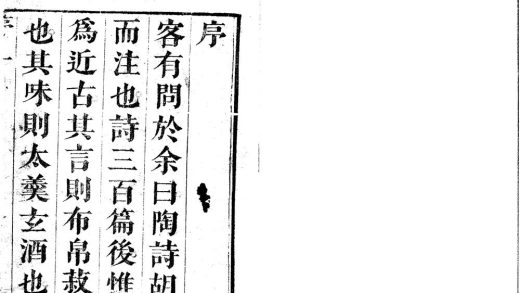 序
客有問於余曰陶詩胡
而注也詩三百篇後惟
爲近古其言則布帛菽
也其味則太羹玄酒也